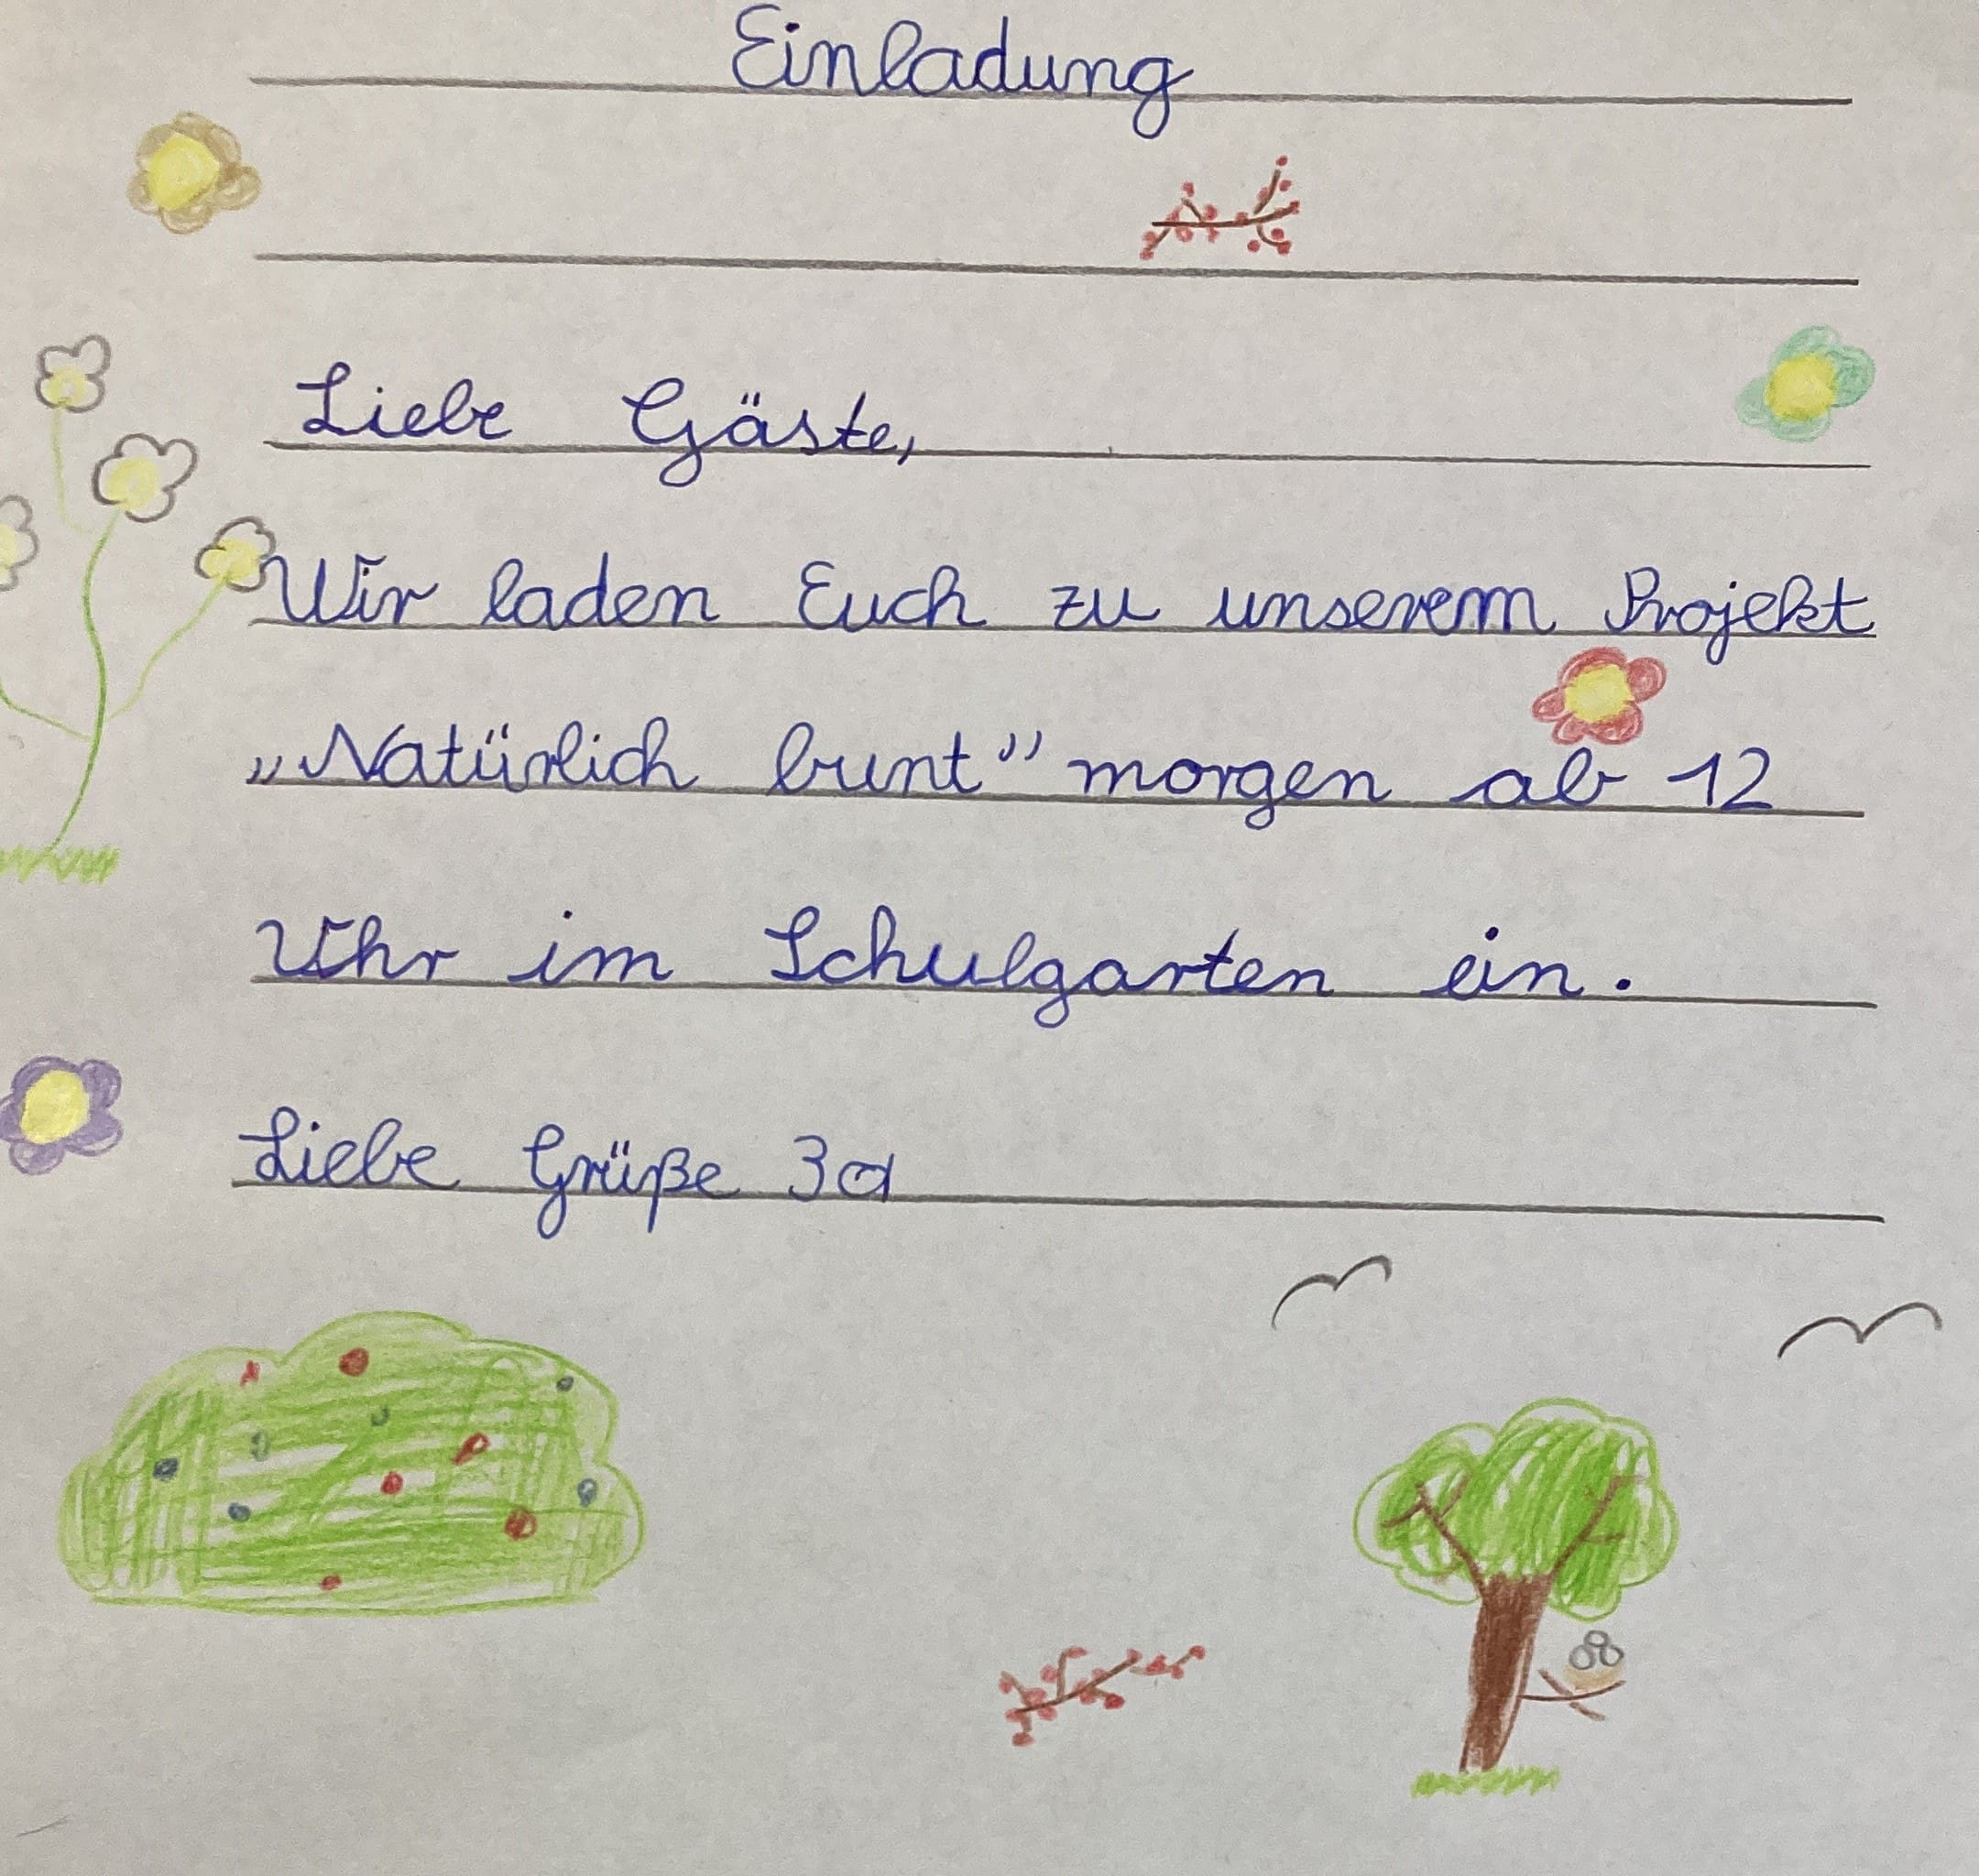 Einladung
Liebe Gäste,
Wir laden Euch zu unserem Projekt
„Natürlich bunt” morgen ab 12
Uhr im Schulgarten ein.
Liebe Grüße 3a